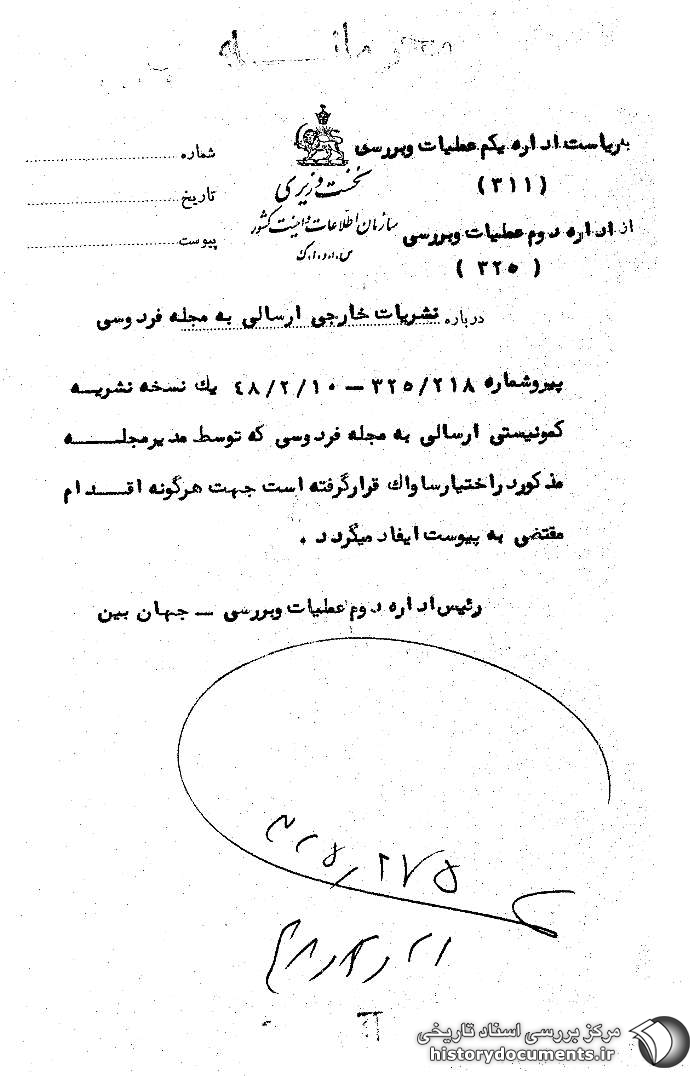 محرمانه
به ریاست اداره یکم عملیات و بررسی
(۳۱۱)
از اداره دوم عملیات و بررسی
(۳۲۵)
نخست وزیری
سازمان اطلاعات و امنیت کشور
س.ا.و.ا.ک
شماره
تاریخ
پیوست
درباره نشریات خارجی ارسالی به مجله فردوسی
پیرو شماره ۳۲۵/۲۱۸ – ۴۸/۲/۱۰ یک نسخه نشریه
کمونیستی ارسالی به مجله فردوسی که توسط مدیر مجله
مذکور در اختیار ساواک قرار گرفته است جهت هرگونه اقدام
مقتضی به پیوست ایفاد میگردد .
رئیس اداره دوم عملیات و بررسی – جهان بین
۳۲۵/۲۷۵
مرکز بررسی اسناد تاریخی
historydocuments.ir